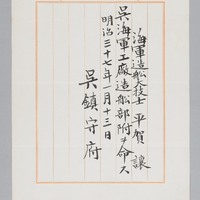 海軍造船大技士 平賀 讓
呉海軍工廠造船部附ヲ命ス
明治三十七年一月十三日
呉鎮守府